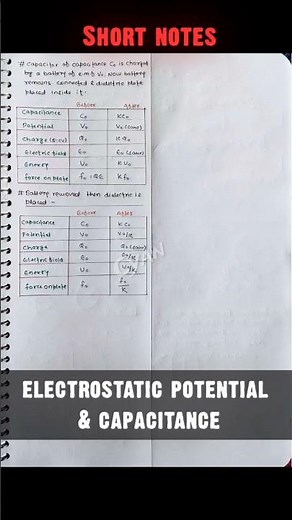 SHORT NOTES
# Capacitor of capacitance C₀ is charged
by a battery of emf V₀. Now battery
remains connected & dielectric plate
placed inside it.
Before After
Capacitance C₀ KC₀
Potential V₀ V₀ (const)
Charge Q₀ KQ₀
Electric field E₀ E₀ (const)
Energy U₀ KU₀
Force on plate f₀ = QE K f₀
# Battery removed then dielectric is
placed -
Before After
Capacitance C₀ KC₀
Potential V₀ V₀/K
Charge Q₀ Q₀ (const)
Electric field E₀ E₀/K
Energy U₀ U₀/K
force on plate f₀ f₀/K
GYAN
ELECTROSTATIC POTENTIAL
& CAPACITANCE